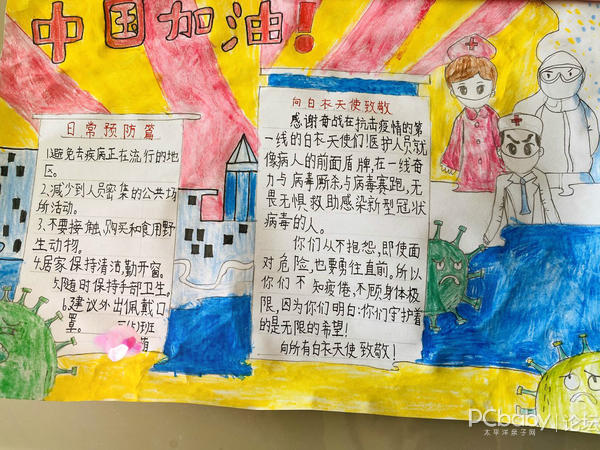 中国加油！
日常预防篇
1.避免去疾病正在流行的地
区。
2.减少到人员密集的公共场
所活动。
3.不要接触、购买和食用野
生动物。
4.居家保持清洁,勤开窗。
5.随时保持手部卫生。
6.建议外出佩戴口
罩。
班
向白衣天使致敬
感谢奋战在抗击疫情的第
一线的白衣天使们!医护人员就
像病人的前面盾牌,在一线奋
力与病毒厮杀与病毒赛跑,无
畏无惧救助感染新型冠状
病毒的人。
你们从不抱怨,即使面
对危险,也要勇往直前。所以
你们不知疲倦、不顾身体极
限,因为你们明白:你们守护着
的是无限的希望!
向所有白衣天使致敬!
PCbaby 论坛
太平洋亲子网